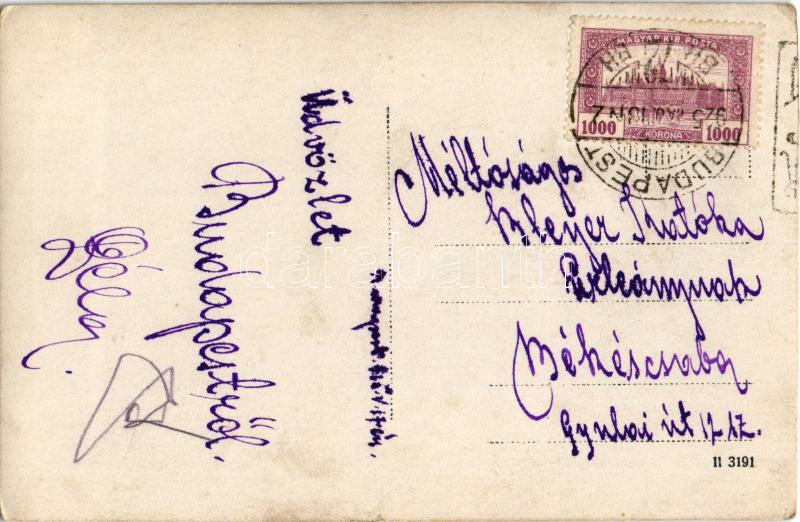 MAGYAR KIR. POSTA
1000 KORONA 1000
BUDAPEST
925
Méltóságos
Bleyer Katóka
Úrleánynak
Békéscsaba
Gyulai út 12 sz.
Üdvözlet
Budapestről
Géza
II 3191
darabanth